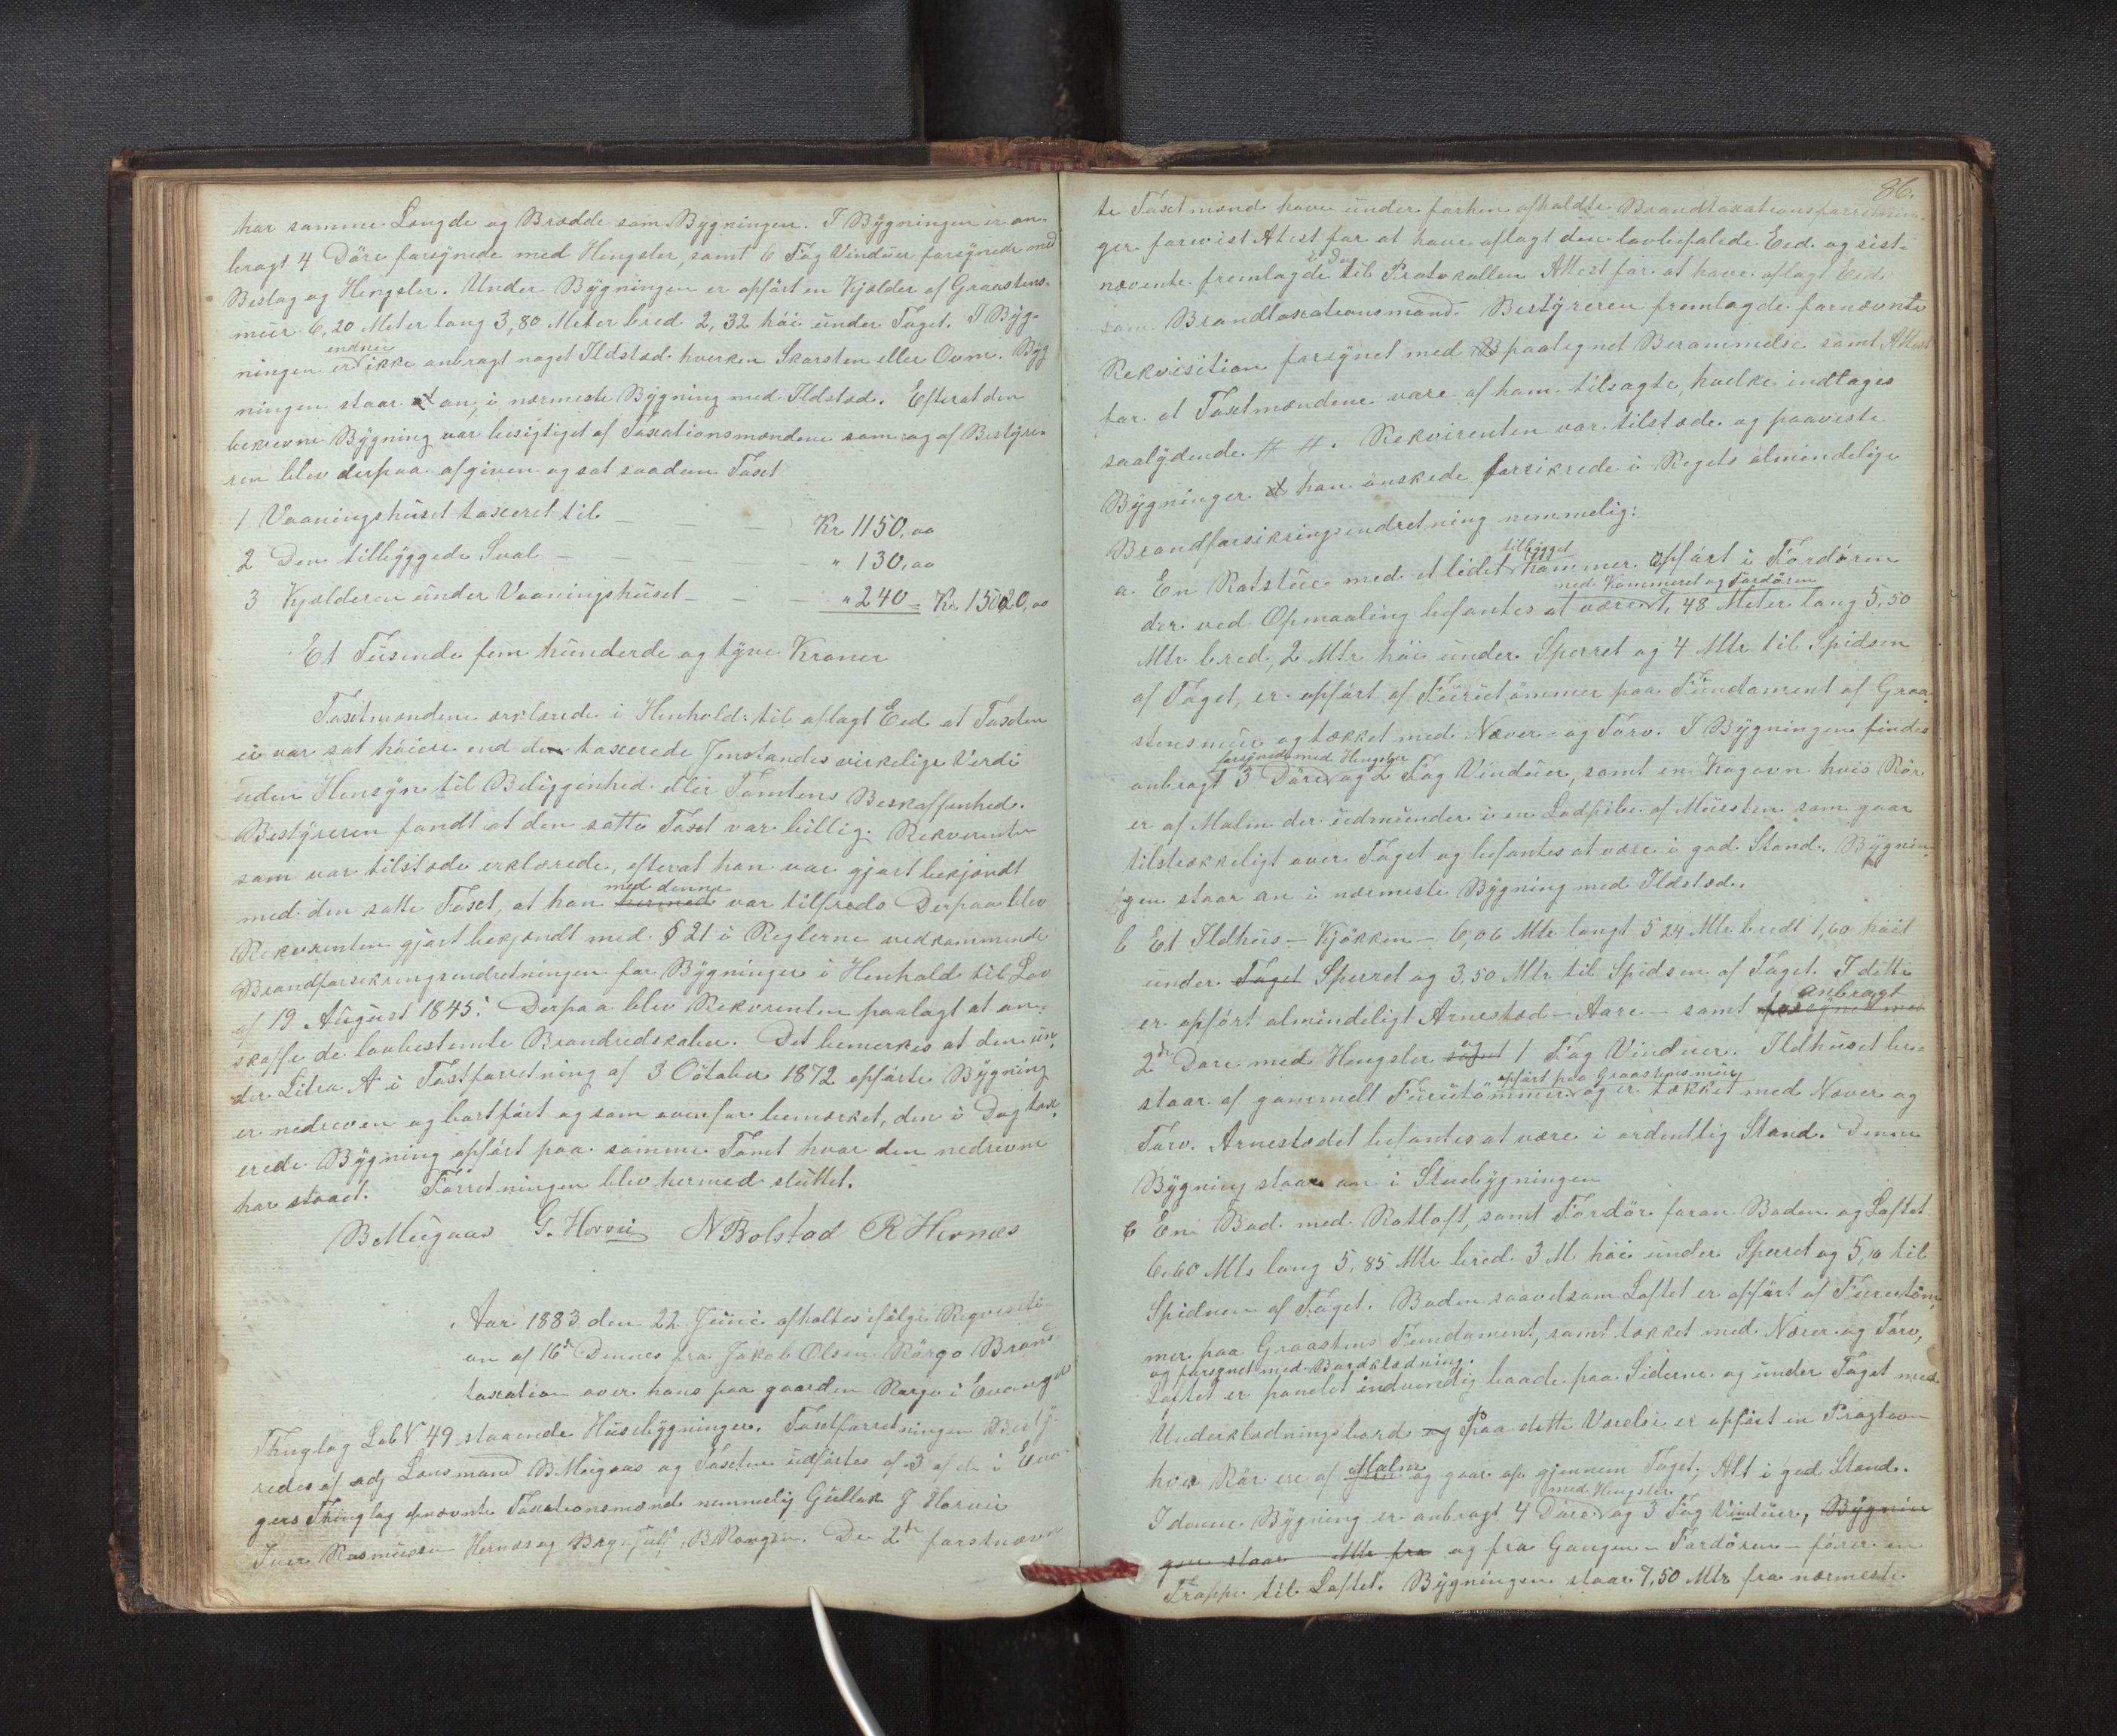 har samme Længde og Brædde som Bygningen. I Bygningen er an-
bragt 4 Döre forsynede med Hengsler, samt 6 Fag Vinduer forsynede med
Beslag og Hengsler. Under Bygningen er opfört en Kjelder af Graastens-
mur 6,20 Meter lang 3,80 Meter bred 2,32 höi under Taget. I Byg-
ningen er endnu ikke anbragt noget Ildsted hverken Skorsten eller Ovn. Byg
ningen staar an, i nærmeste Bygning med Ildsted. Efterat den
beskrevne Bygning var besigtiget af Taxationsmændene som og af Bestyre-
ren blev derpaa afgiven og sat saadan Taxt
1 Vaaningshuset taxeret til — — Kr 1150,00
2 Den tilbyggede Sval — — — " 130,00
3 Kjelderen under Vaaningshuset — — — " 240 = Kr. 1520,00
Et Tusende fem hunderde og tyve Kroner
Taxtmændene erklærede i Henhold til aflagt Eed at Taxten
ei var sat höiere end den taxerede Jenstandes virkelige Verdi
uden Hensyn til Beliggenhed eller Tomtens Beskaffenhed.
Bestyreren fandt at den satte Taxt var billig. Rekvirenten
som var tilstæde erklærede, efterat han var gjort bekjendt
med den satte Taxt, at han hermed med denne var tilfreds Derpaa blev
Rekvirenten gjort bekjendt med § 21 i Reglerne vedkommende
Brandforsikringsindretningen for Bygninger i Henhold til Lov
af 19 August 1845. Derpaa blev Rekvirenten paalagt at an-
skaffe de lovbestemte Brandredskaber. Det bemerkes at den un-
der Litra A i Taxtforretning af 3 October 1872 opförte Bygning
er nedreven og bortfört og som ovenfor bemærket, den i Dag tax-
erede Bygning opfört paa samme Tomt hvor den nedrevne
har staaet. Forretningen blev hermed sluttet.
B Meugaas G. Horvei N Bolstad R Hernæs
Aar 1883 den 22 Juni afholtes ifölge Reqvisiti
on af 16de Dennes fra Jakob Olsen Rörgo Brand
taxation over hans paa gaarden Rorgo i Evanger
Thinglag Lob N 49 staaende Husebygninger. Taxtforretningen Besty-
redes af adj Lensmand B Meugaas og Taxten udförtes af 3 af de i Evan-
gers Thinglag opnævnte Taxationsmænd nemmelig Gullak J Horvei
Iver Rasmusen Hernæs og Brynjulf B Rongen. De 2de förstnævn
86.
te Taxtmænd have under forhen afholdte Brandtaxationsforretnin-
ger forevist Atest for at have aflagt den lovbefalede Eed og sist-
nævente fremlagde i Dag til Protokollen Attest for at have aflagt Eed
som Brandtaxationsmand. Bestyreren fremlagde fornævnte
Rekvisition forsynet med paategnet Berammelse samt Attest
for at Taxtmændene vare af ham tilsagte, hvilke indtages
saalydende # #. Rekvirenten var tilstæde og paaviste
Bygninger han önskede forsikrede i Regets almindelige
Brandforsikringsindretning nemmelig:
a En Rotstue med et lidet tilbygget kammer opfört i Fordören
der ved Opmaaling befantes at være med Kammeret og Fordören 7,48 Meter lang 5,50
Mtr bred, 2 Mtr höi under Sperret og 4 Mtr til Spidsen
af Taget, er opfört af Furutömmer paa Fundament af Graa-
stensmur og tækket med Næver- og Torv. I Bygningen findes
anbragt 3 Döre forsynede med Hengsler og 2 Fag Vinduer, samt en Kogovn hvis Rör
er af Malm der udmunder i en Lodpibe af Mursten som gaar
tilstrækkeligt over Taget og befantes at være i god Stand. Bygnin-
gen staar an i nærmeste Bygning med Ildsted.
b Et Ildhus - Kjökken - 6,06 Mtr langt 5 24 Mtr bredt 1,60 höit
under Taget Sperret og 3,50 Mtr til Spidsen af Taget. I dette
er opfört almindeligt Arnested - Aare - samt forsynet med anbragt
2de Döre med Hengsler og 1 Fag Vinduer. Ildhuset be-
staar af gammelt Furutömmer opfört paa Graastensmur og er tækket med Næver og
Torv. Arnestedet befantes at være i ordentlig Stand. Denne
Bygning staar an i Stuebygningen
c En Bod med Rotloft, samt Fordör foran Boden og Loftet
6.60 Mts lang 5,85 Mtr bred 3 M höi under Sperret og 5,10 til
Spidsen af Taget. Boden saavelsom Loftet er opfört af Furutöm-
mer paa Graastens Fundament, samt tækket med Næver og Torv,
og forsynet med Bordklædning.
Loftet er panelet indvendig baade paa Siderne og under Taget med
Underklædningsbord Paa dette Værelse er opfört en Pragtovn
hvis Rör ere af Malm og gaar op gjennem Taget, Alt i god Stand.
I denne Bygning er anbragt 4 Döre med Hengsler og 3 Fag Vinduer, Bygnin
gen staar Mtr fra og fra Gangen - Fordören - förer en
Trappe til Loftet. Bygningen staar 7,50 Mtr fra nærmeste